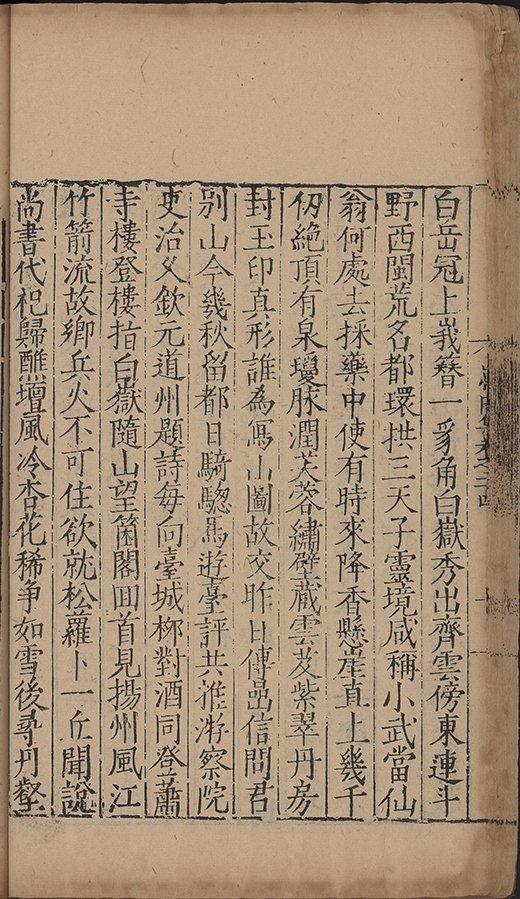 白岳冠上峩簪一豸角白嶽秀出齊雲傍東連斗
野西閩荒名都環拱三天子靈境咸稱小武當仙
翁何處去採藥中使有時來降香懸崖直上幾千
仭絶頂有泉瓊脉潤芙蓉繡壁藏雲芨紫翠丹房
封玉印真形誰為寫山圖故交昨日傳喦信問君
别山今幾秋留都日騎驄馬遊臺評共推游察院
吏治乂欽元道州題詩每向臺城栁對酒同登蕭
寺樓登樓指白嶽隨山望箘閣囬首見揚州風江
竹箭流故鄉兵火不可住欲就松蘿卜一丘聞說
尚書代祀歸醮壇風冷杏花稀争如雪後尋丹壑